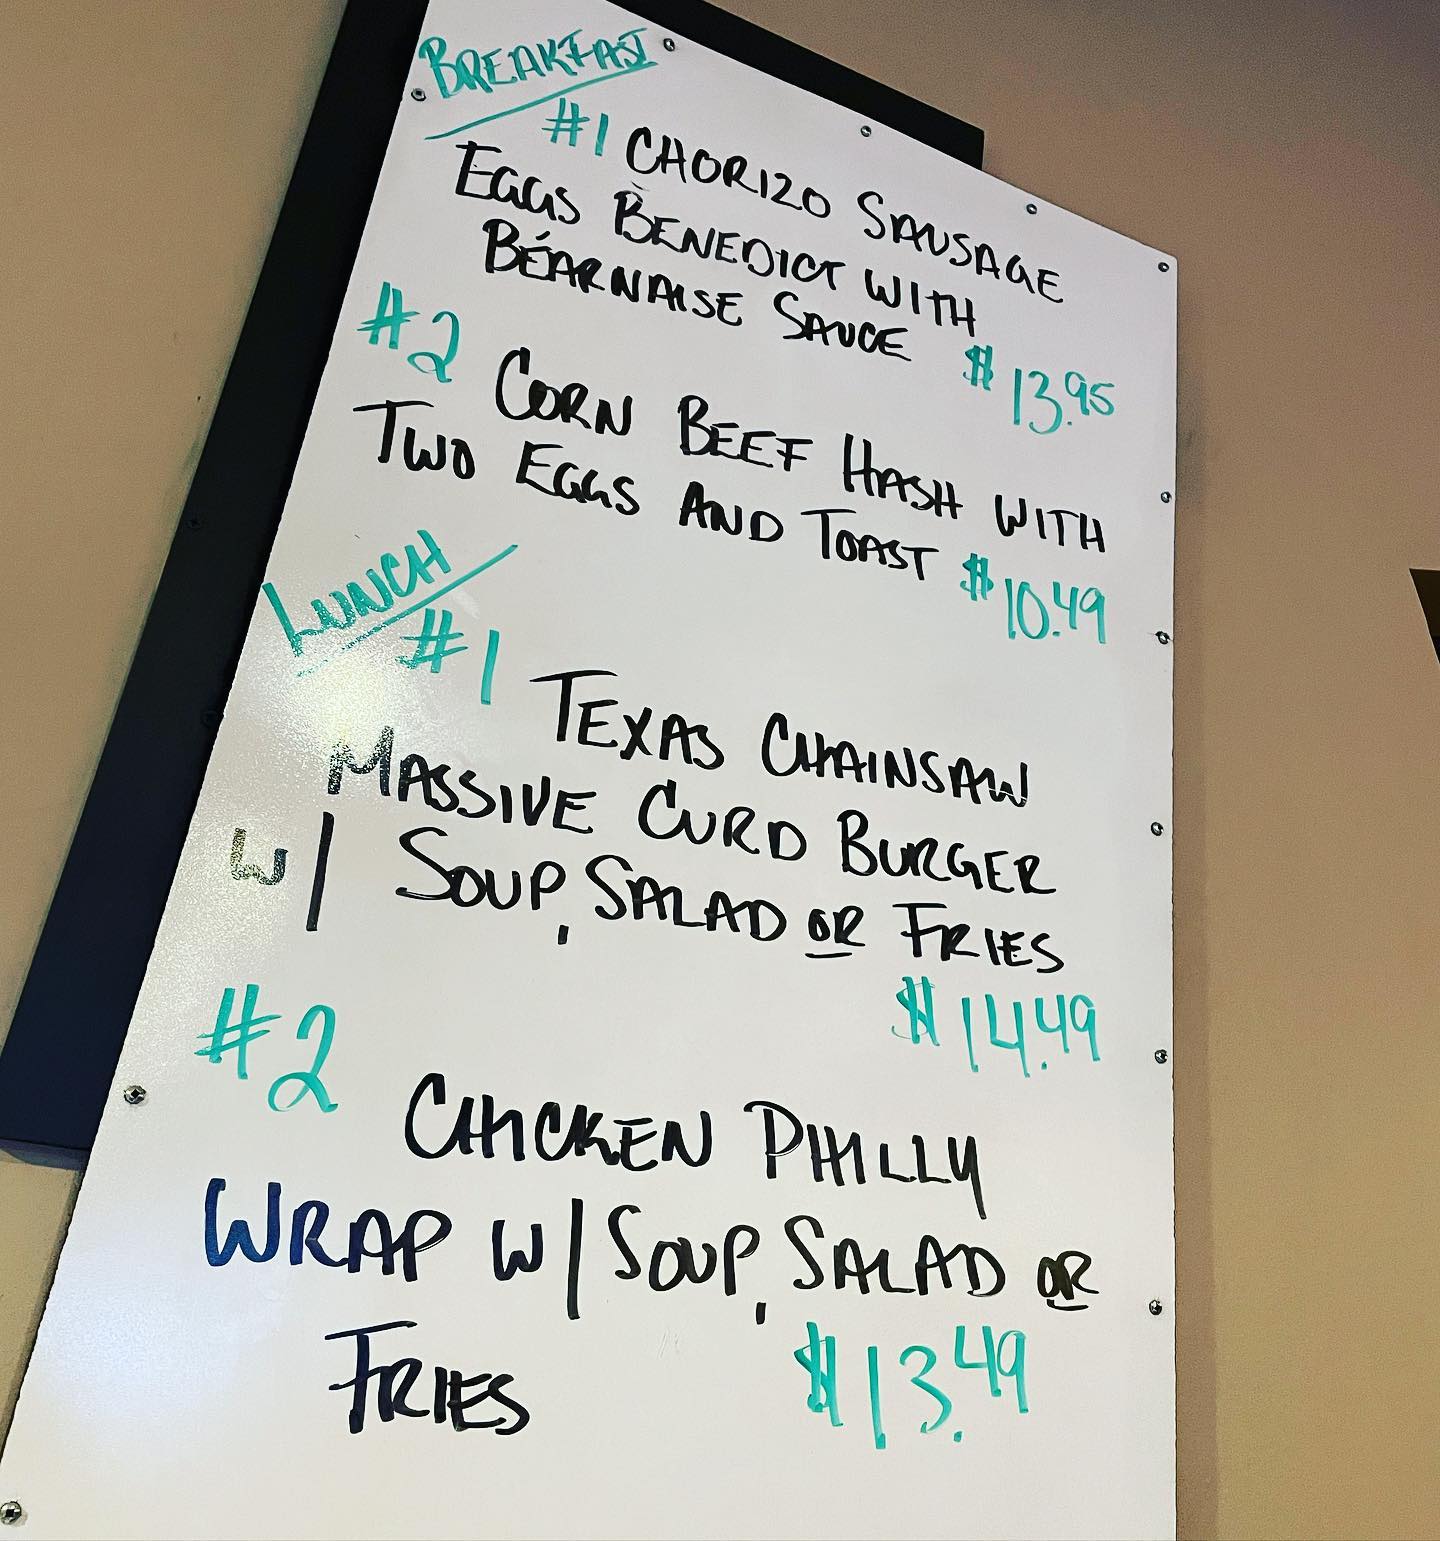 BREAKFAST
#1 CHORIZO SAUSAGE
EGGS BENEDICT WITH
BÉARNAISE SAUCE $13.95
#2 CORN BEEF HASH WITH
TWO EGGS AND TOAST $10.49
LUNCH
#1 TEXAS CHAINSAW
MASSIVE CURD BURGER
W/ SOUP, SALAD OR FRIES
$14.49
#2 CHICKEN PHILLY
WRAP W/ SOUP, SALAD OR
FRIES $13.49